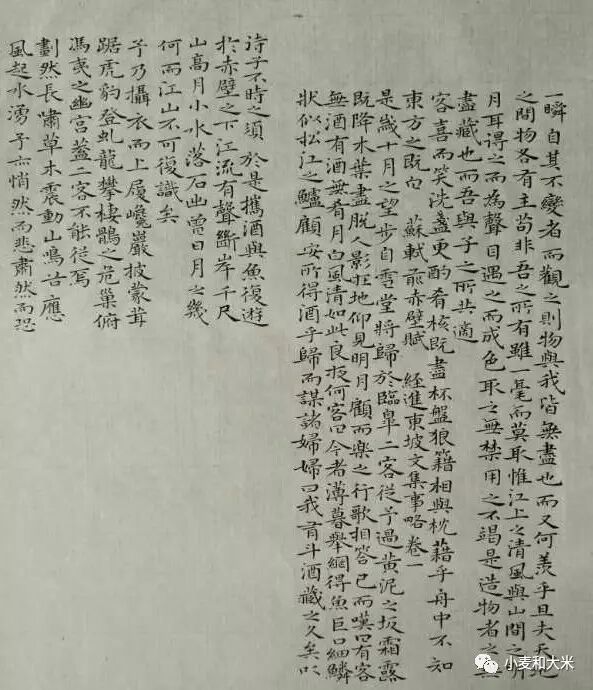 一瞬自其不變者而觀之則物與我皆無盡也而又何羨乎且夫天地
之間物各有主苟非吾之所有雖一毫而莫取惟江上之清風與山間之明
月耳得之而為聲目遇之而成色取之無禁用之不竭是造物者之無
盡藏也而吾與子之所共適
客喜而笑洗盞更酌肴核既盡杯盤狼籍相與枕藉乎舟中不知
東方之既白 蘇軾前赤壁賦 經進東坡文集事略卷一
是歲十月之望步自雪堂將歸於臨皋二客從予過黃泥之坂霜露
既降木葉盡脫人影在地仰見明月顧而樂之行歌相答已而嘆曰有客
無酒有酒無肴月白風清如此良夜何客曰今者薄暮舉網得魚巨口細鱗
狀似松江之鱸顧安所得酒乎歸而謀諸婦婦曰我有斗酒藏之久矣以
待子不時之須於是攜酒與魚復遊
於赤壁之下江流有聲斷岸千尺
山高月小水落石出曾日月之幾
何而江山不可復識矣
予乃攝衣而上履巉巖披蒙茸
踞虎豹登虬龍攀棲鶻之危巢俯
馮夷之幽宮蓋二客不能從焉
劃然長嘯草木震動山鳴谷應
風起水湧予亦悄然而悲肅然而恐
小麦和大米